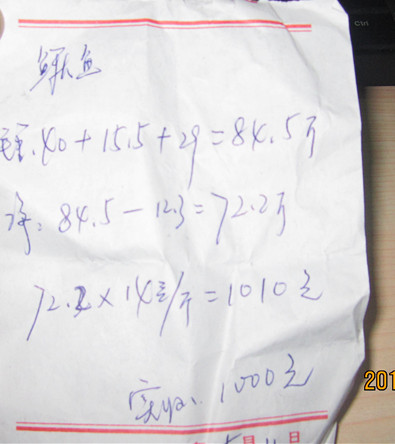 鱼
重:40+15.5+29=84.5斤
净:84.5-12.3=72.2斤
72.2×14元/斤=1010元
实收:1000元
201
月11日